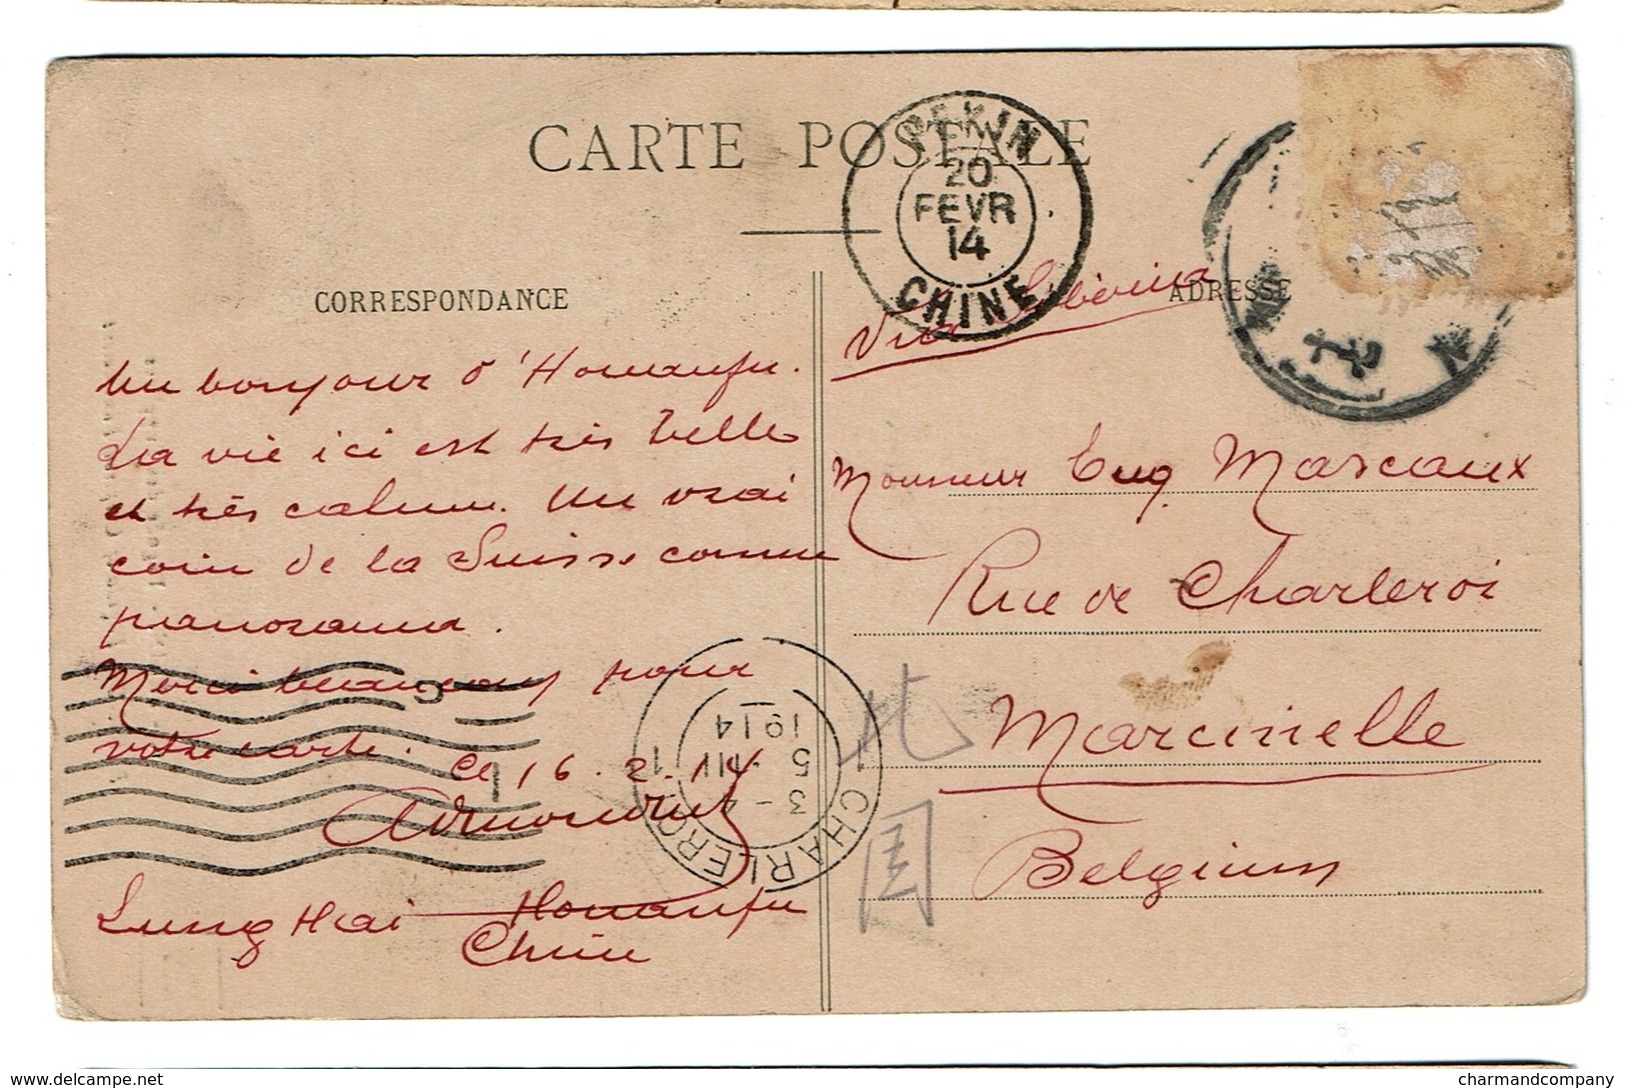 CARTE POSTALE
PEKIN
20
FEVR
14
CHINE
CORRESPONDANCE
ADRESSE
Via Sibérica
Un bonjour d'Honanfu.
La vie ici est très belle
et très calme. Un vrai
coin de la Suisse comme
panorama.
Merci beaucoup pour
votre carte.
Ce 16.2.14
Lung Hai Honanfu
Chine
Monsieur Eug Mascaux
Rue de Charleroi
Marcinelle
Belgium
CHARLEROI
1
3-4
5 III
1914
13
北
国
delcampe.net
charmandcompany